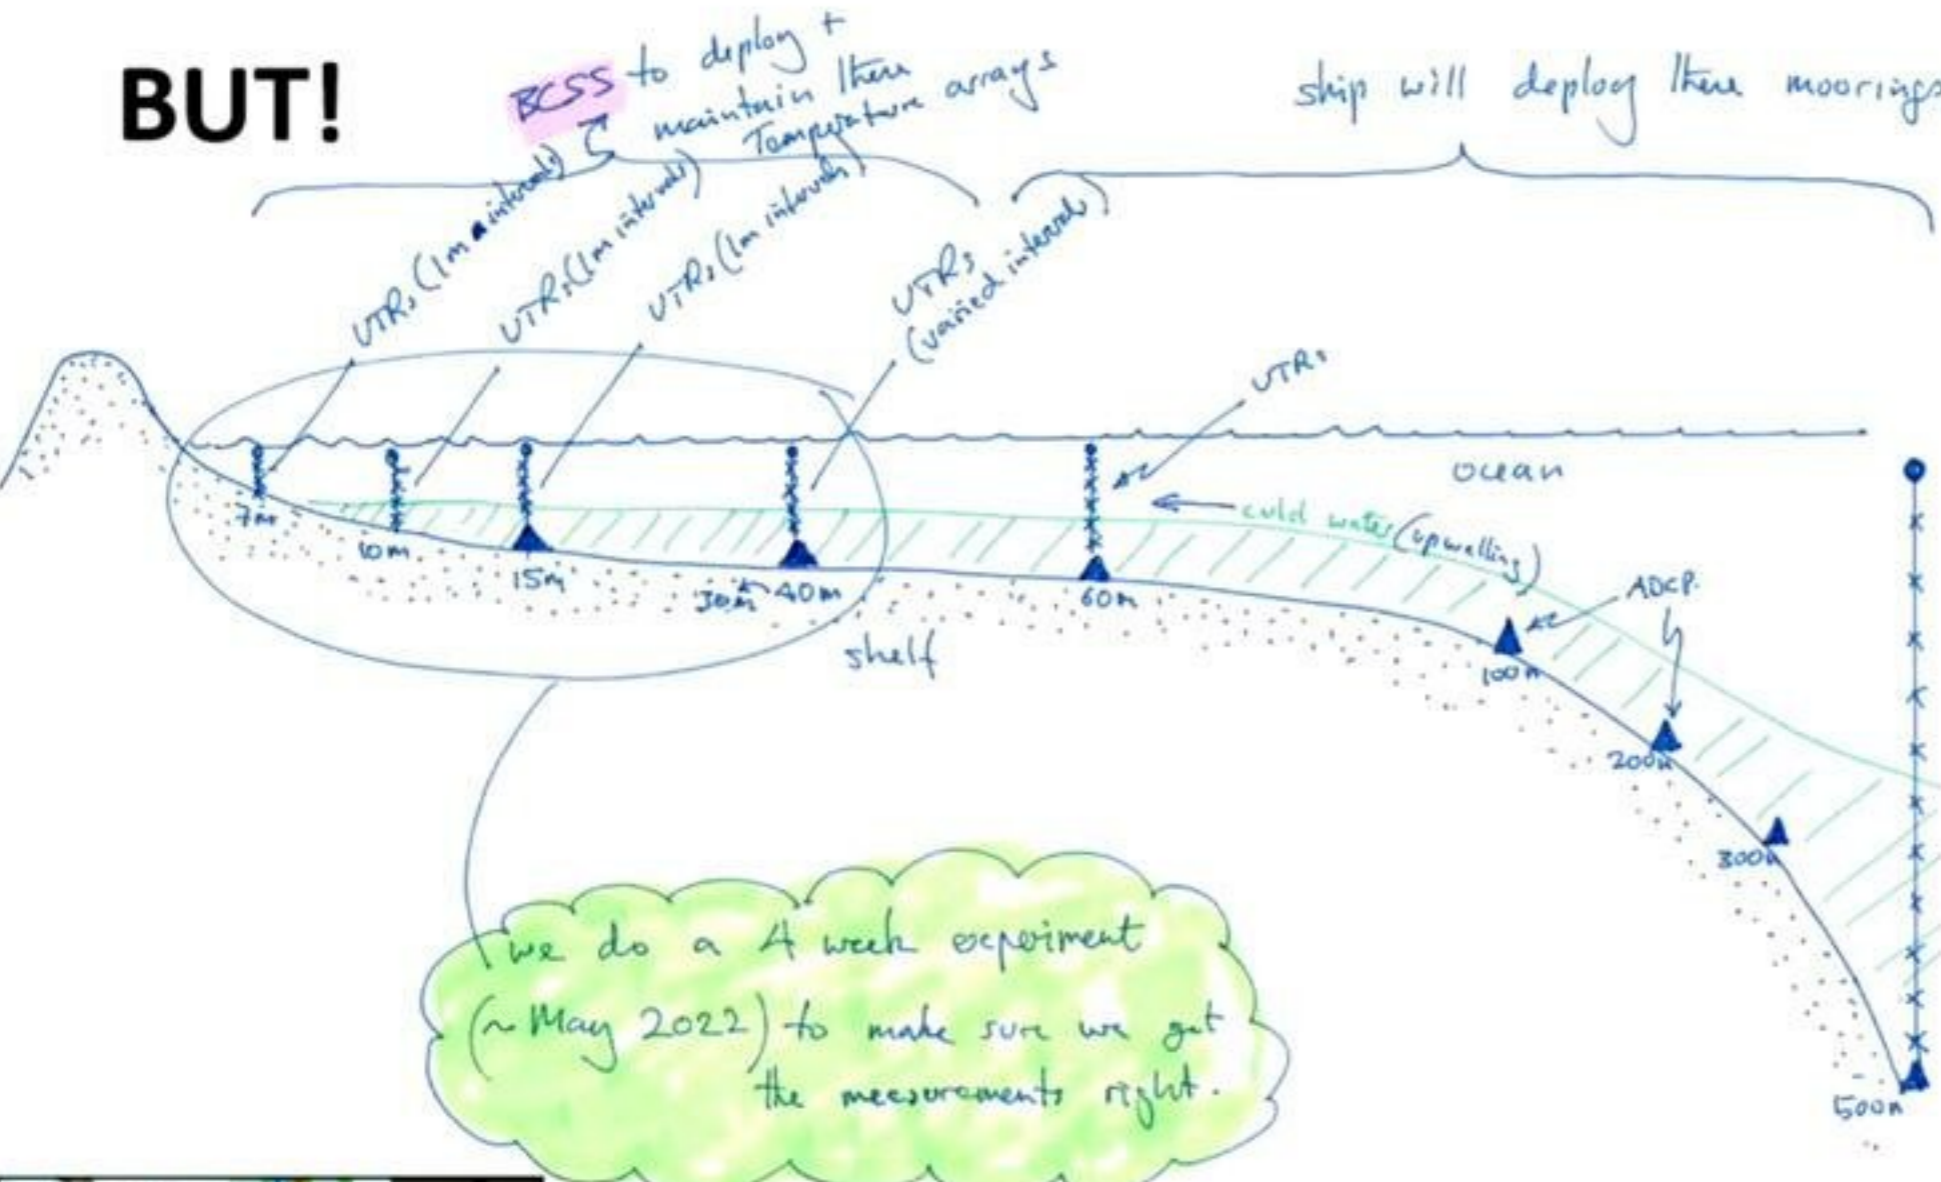 BUT!
BCSS to deploy +
maintain there
Temperature arrays
ship will deploy there moorings
UTRs (1m intervals)
UTRs (1m intervals)
UTRs (1m intervals)
UTRs
(varied intervals)
UTRs
ocean
cold water (upwelling)
ADCP.
7m
10m
15m
30m 40m
60m
100m
200m
300m
500m
shelf
we do a 4 week experiment
(~ May 2022) to make sure we get
the measurements right.